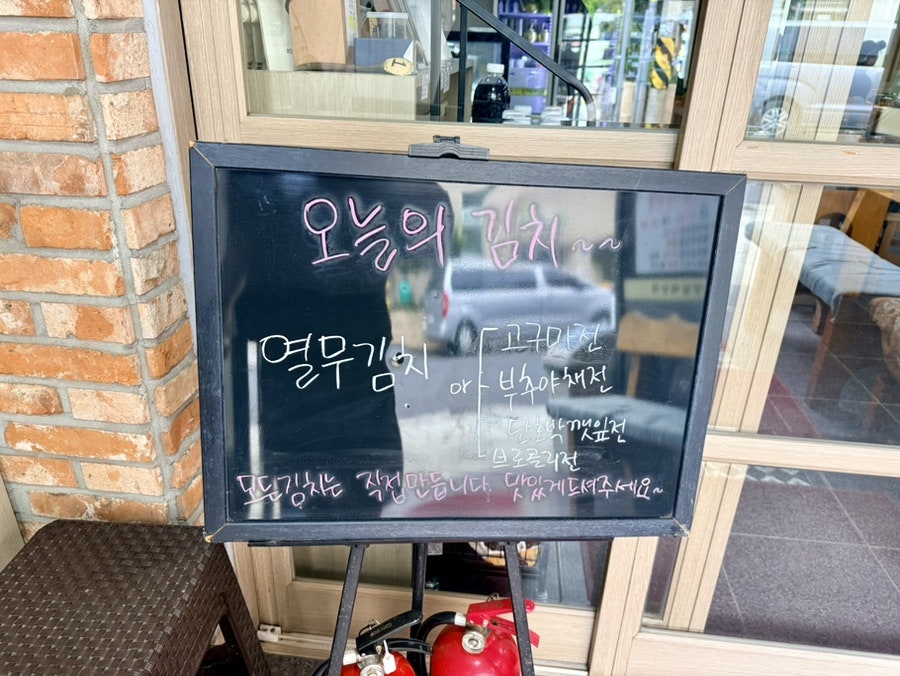 오늘의 김치~~
열무김치
와
고구마전
부추야채전
단호박깻잎전
브로콜리전
모든김치는 직접만듭니다. 맛있게드셔주세요~